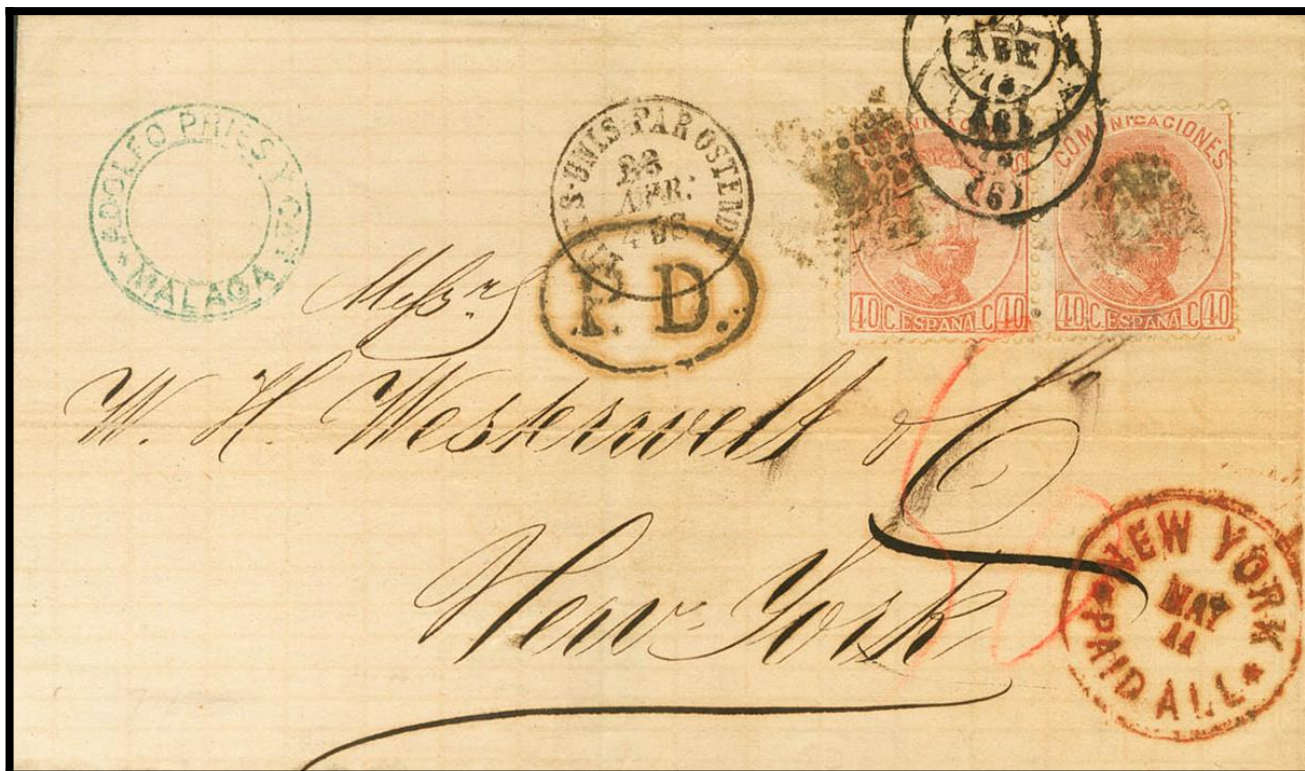 ADOLFO PRIES Y CA
MALAGA
ES-UNIS PAR OSTEND
APR.
P. D.
ABR
(6)
COMUNICACIONES
40 C. ESPAÑA C 40
40 C. ESPAÑA C 40
Messrs
W. H. Westerwelt & Co
New-York
NEW YORK
MAY
11
PAID ALL